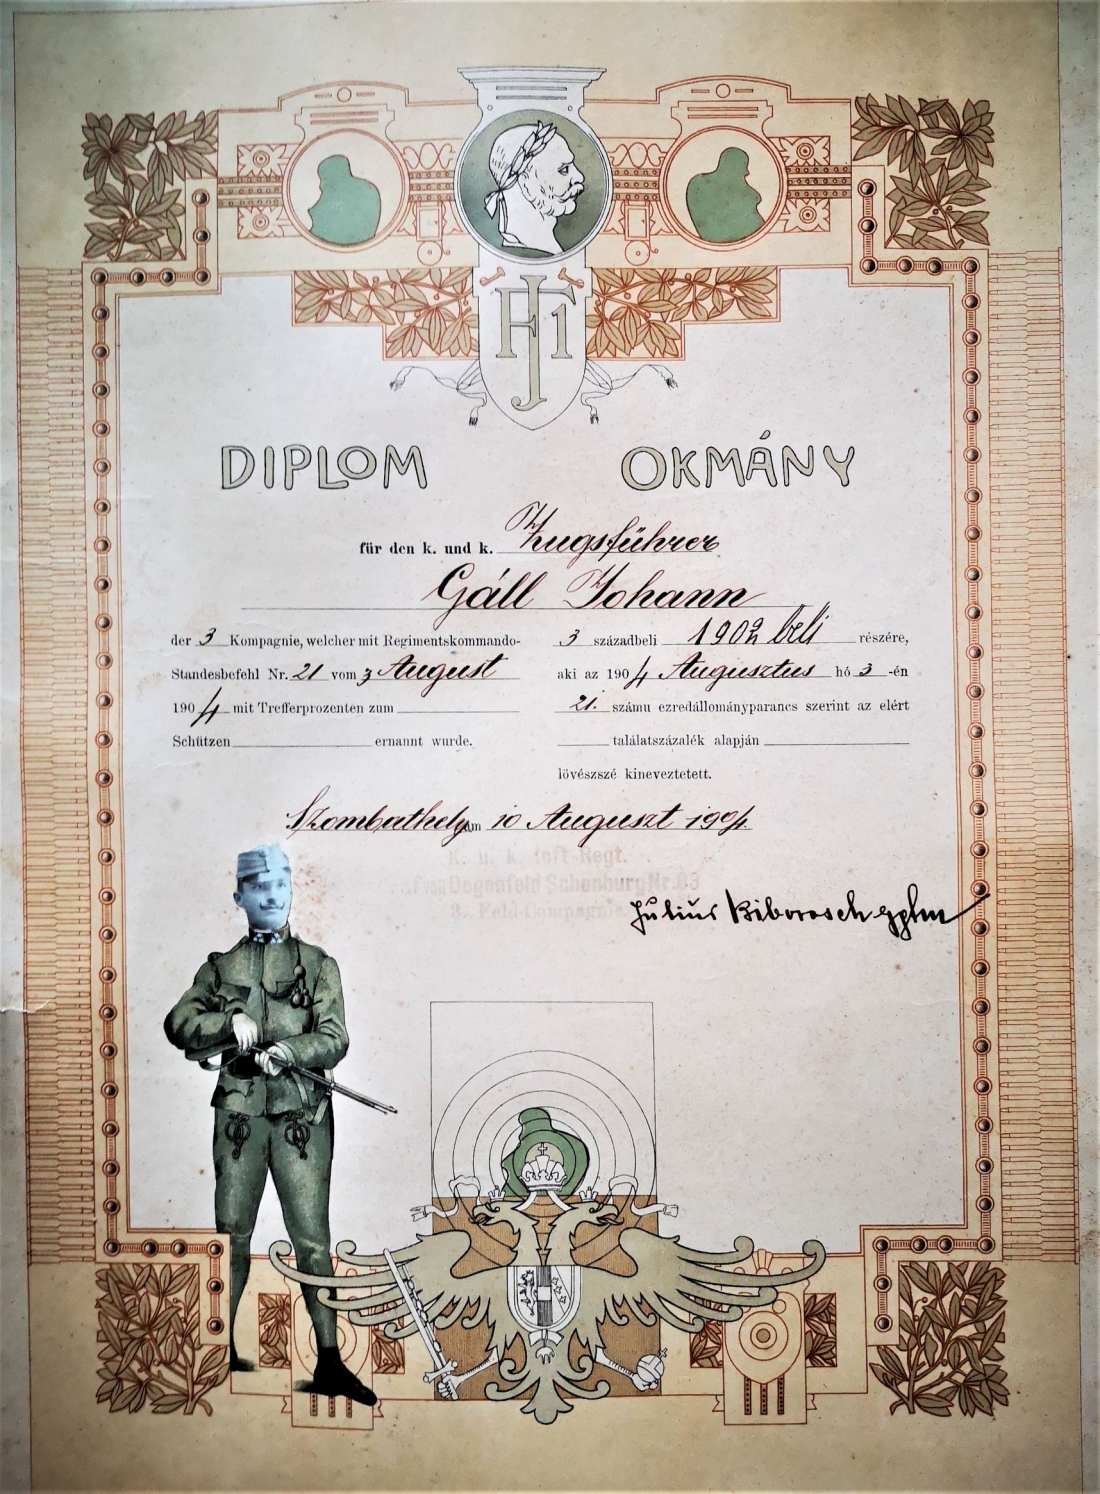 FJ1
DIPLOM OKMÁNY
für den k. und k. Zugsführer
Gáll Johann
der 3 Kompagnie, welcher mit Regimentskommando-
Standesbefehl Nr. 21 vom 3 August
1904 mit Trefferprozenten zum
Schützen ernannt wurde.
3 századbeli 1902 beli részére,
aki az 1904 Augusztus hó 3-én
21. számu ezredállományparancs szerint az elért
találatszázalék alapján
lövészszé kineveztetett.
Szombathely am 10 August 1904.
K. u. k. Inft-Regt.
Degenfeld Schonburg Nr. 83
3. Feld-Compagnie
Julius